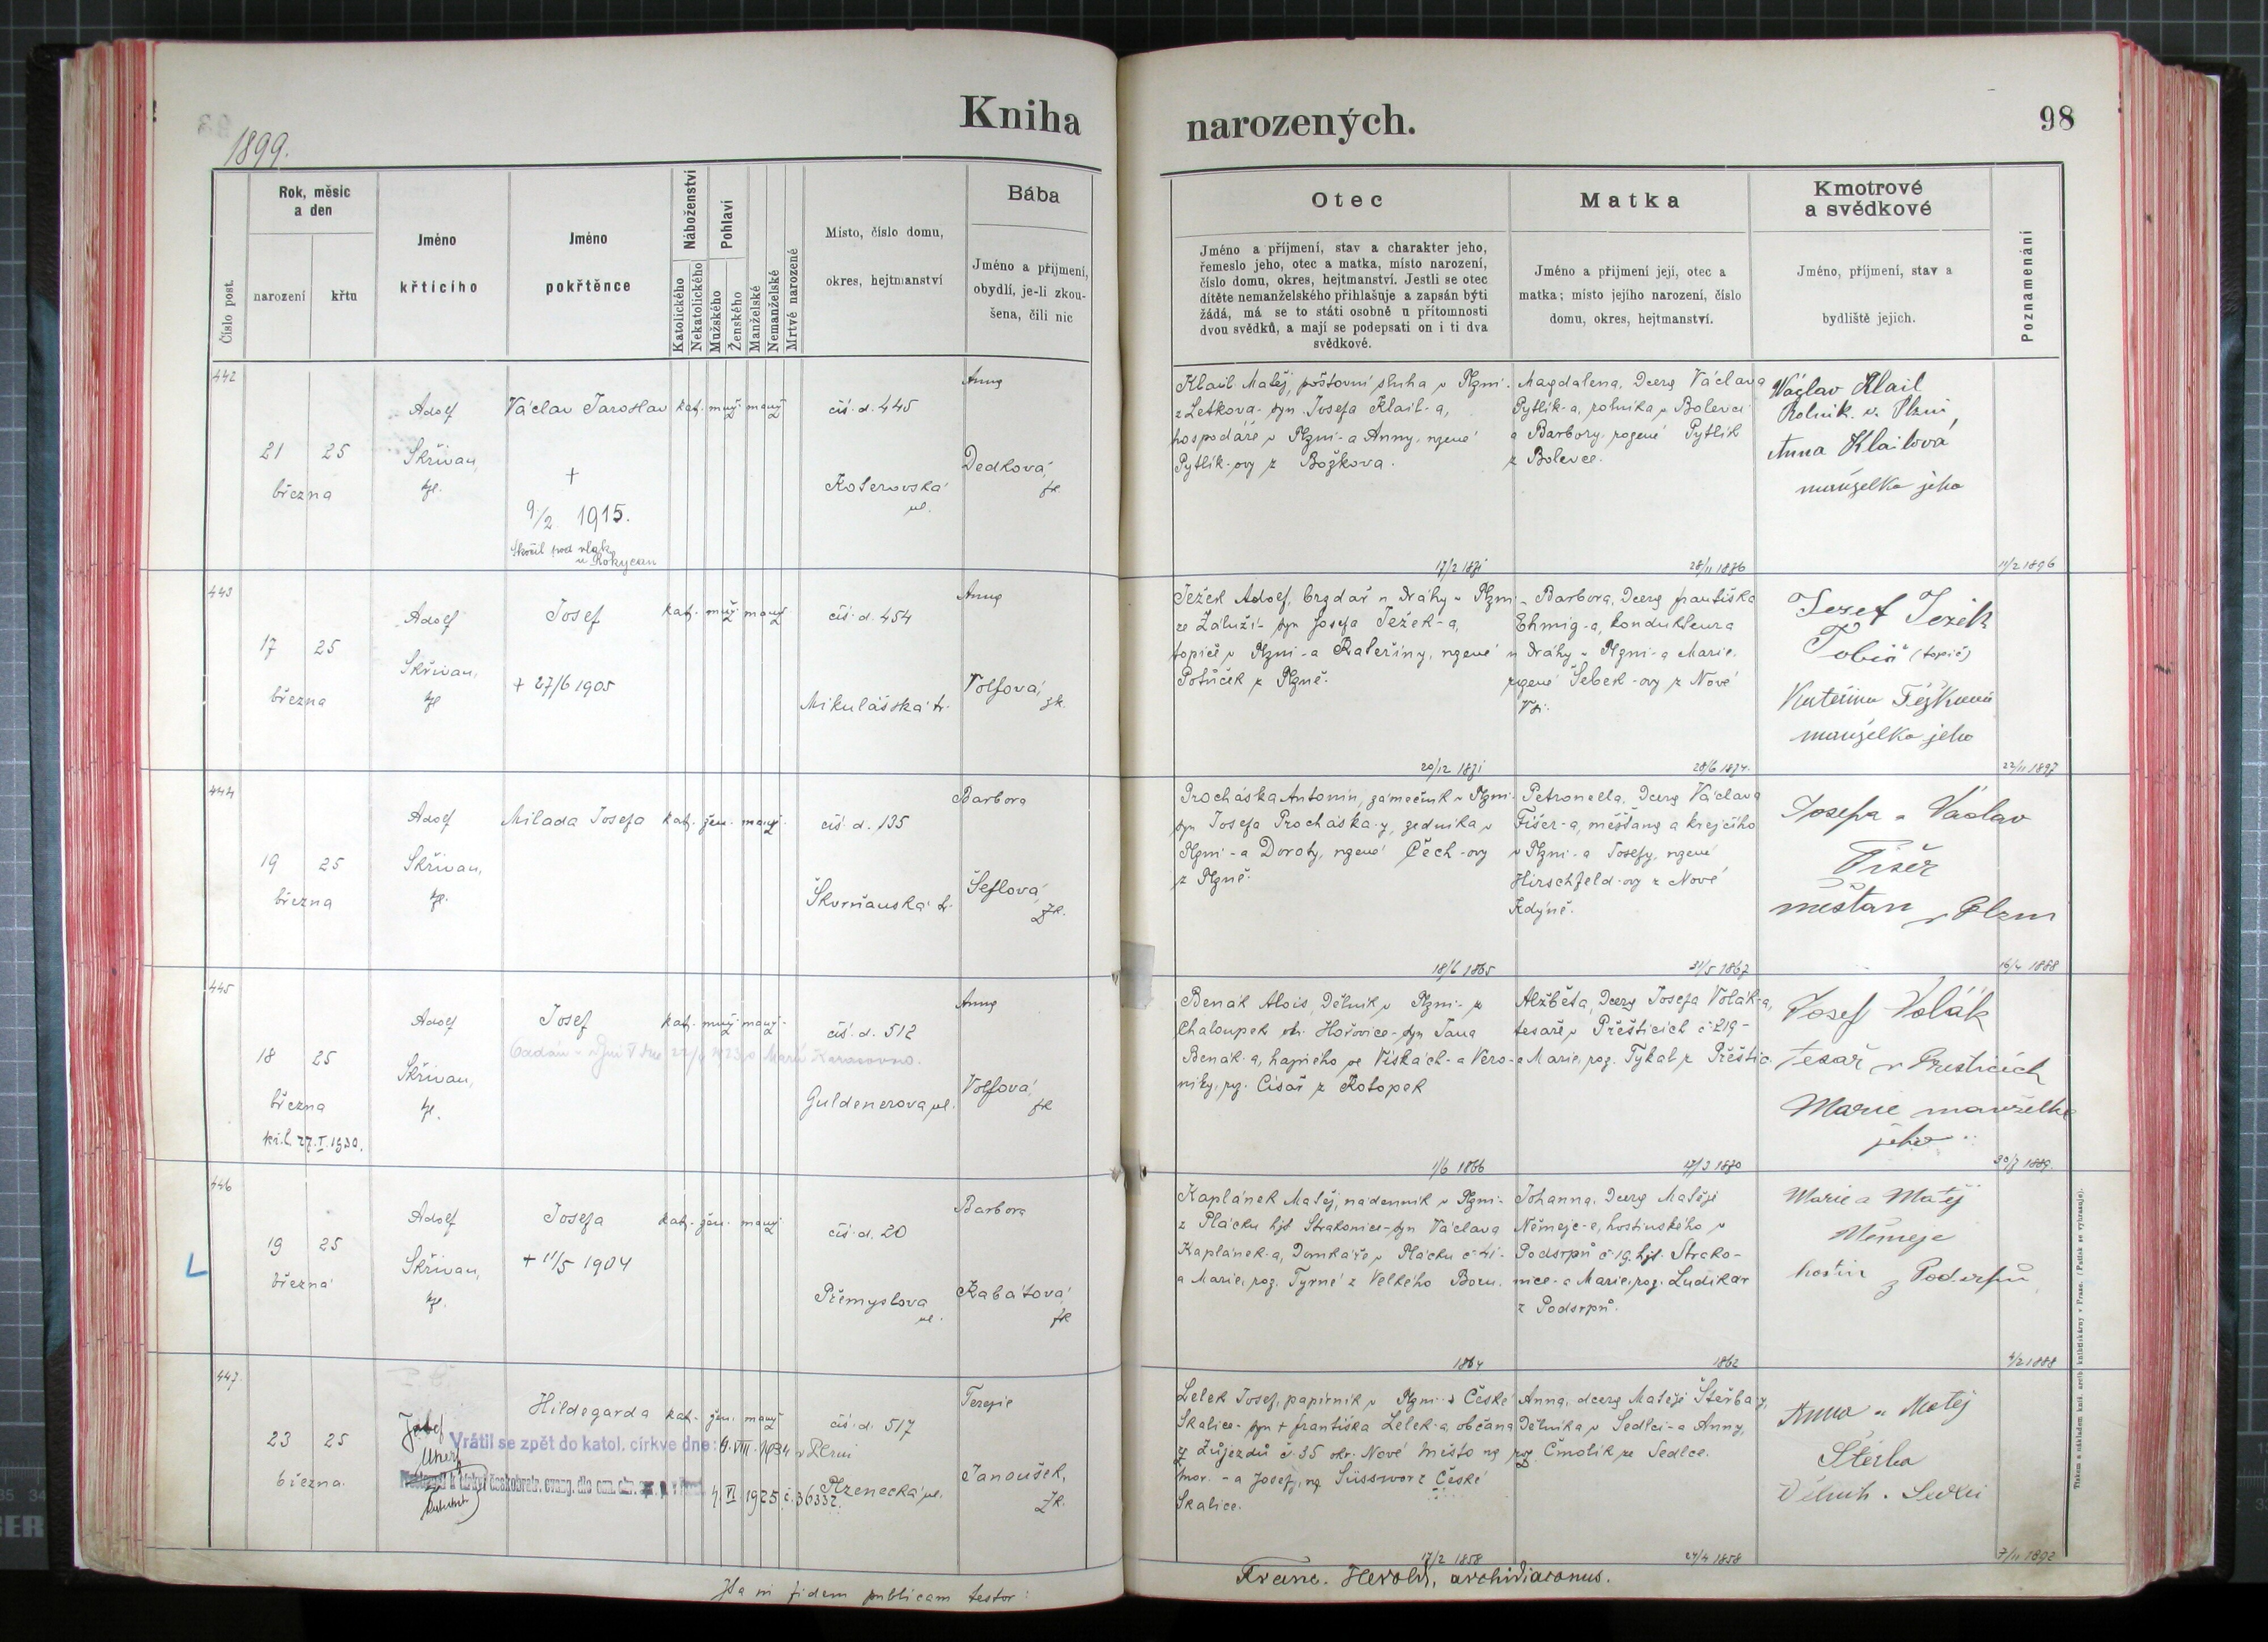 Kniha
1899.
Číslo post.
Rok, měsíc
a den
narození
křtu
Jméno
křtícího
Jméno
pokřtěnce
Náboženství
Katolického
Nekatolického
Pohlaví
Mužského
Ženského
Manželské
Nemanželské
Mrtvě narozené
Místo, číslo domu,
okres, hejtmanství
Bába
Jméno a příjmení,
obydlí, je-li zkou-
šena, čili nic
442
21 25
března
Adolf
Skřivan,
Václav Jaroslav
kat. muž. manž.
†
9/2 1915.
skočil pod vlak
u Rokycan
čís. d. 445
Koterovská
ul.
Anna
Dedková,
zk.
443
17 25
března
Adolf
Skřivan,
Josef
kat. muž. manž.
+ 27/6 1905
čís. d. 454
Mikulášská tr.
Anna
Volfová,
zk.
444
19 25
března
Adolf
Skřivan,
Milada Josefa
kat. žen. manž.
čís. d. 135
Škvrňanská tr.
Barbora
Šeflová,
zk.
445
18 25
března
kř. l. 27.I.1930.
Adolf
Skřivan,
Josef
kat. muž. manž.
čís. d. 512
Guldenerova ul.
Anna
Volfová,
zk
446
19 25
března
Adolf
Skřivan,
Josefa
kat. žen. manž.
+ 11/5 1904
čís. d. 20
Přemyslova
ul.
Barbora
Kabátová,
zk
447
23 25
března.
Josef
Hildegarda
kat. žen. manž.
Vrátil se zpět do katol. církve dne: 9. VIII. 1934 v Plzni
4. VI 1925 č. 36332.
čís. d. 517
Plzenecká ul.
Terezie
Janoušek,
zk.
Ita in fidem publicam testor:
narozených.
98
Otec
Jméno a příjmení, stav a charakter jeho,
řemeslo jeho, otec a matka, místo narození,
číslo domu, okres, hejtmanství. Jestli se otec
dítěte nemanželského přihlašuje a zapsán býti
žádá, má se to státi osobně u přítomnosti
dvou svědků, a mají se podepsati on i ti dva
svědkové.
Matka
Jméno a příjmení její, otec a
matka; místo jejího narození, číslo
domu, okres, hejtmanství.
Kmotrové
a svědkové
Jméno, příjmení, stav a
bydliště jejich.
Poznamenání
Klail Matěj, poštovní sluha v Plzni-
z Letkova- syn Josefa Klail-a,
hospodáře v Plzni-a Anny, rozené
Pytlík-ovy z Božkova.
17/2 1871
Magdalena, dcera Václava
Pytlík-a, rolníka v Bolevci
a Barbory, rozené Pytlík
z Bolevce.
28/11 1876
Václav Klail
Rolník v Plzni,
Anna Klailová
manželka jeho
11/2 1896
Ježek Adolf, brzdař u dráhy v Plzni
ze Záluží- syn Josefa Ježek-a,
topiče v Plzni-a Kateřiny, rozené
Potůček z Plzně.
20/12 1871
Barbora, dcera Františka
Ehmig-a, kondukteura
u dráhy v Plzni-a Marie,
rozené Šebek-ovy z Nové
Vsi.
28/6 1874.
Josef Ježek
(topič)
Kateřina Ježková
manželka jeho
22/11 1897
Procháska Antonín, zámečník v Plzni-
syn Josefa Procháska-y, zedníka v
Plzni-a Doroty, rozené Čech-ovy
z Plzně.
18/6 1865
Petronella, dcera Václava
Fišer-a, měšťana a krejčího
v Plzni-a Josefy, rozené
Hirschfeld-ovy z Nové
Kdýně.
31/5 1867
Josefa a Václav
Fišer
měšťan v Plzni
16/4 1888
Benák Alois, dělník v Plzni- z
Chaloupek okr. Hořovice-syn Jana
Benák-a, hajného ve Vískách-a Vero-
niky, roz. Císař z Kotopek
1/6 1866
Alžběta, dcera Josefa Volák-a,
tesaře v Přešticích č 219-
a Marie, roz. Tykal z Přeštic.
17/3 1870
Josef Volák
tesař v Přešticích
Marie manželka
jeho
30/7 1889.
Kaplánek Matěj, nádenník v Plzni-
z Plácku hjt Strakonice-syn Václava
Kaplánek-a, domkáře v Plácku č 41-
a Marie, roz. Tyrné z Velkého Boru.
1864
Johanna, dcera Matěje
Němejc-e, hostinského v
Podsrpň č 19 hjt. Strako-
nice-a Marie, roz. Ludikar
z Podsrpň.
1862
Marie a Matěj
Němejc
hostin z Podsrpň
4/2 1888
Lelek Josef, papírník v Plzni z České
Skalice- syn † Františka Lelek-a, občana
z Zújezdů č. 35 okr. Nové Město na
Mor. -a Josefy, roz. Süsswor z České
Skalice.
17/2 1858
Anna, dcera Matěje Štěrba-y,
Dělníka v Sedlci-a Anny,
roz. Čmolík ze Sedlce.
24/4 1858
Anna a Matěj
Štěrba
Dělník. Sedlci
7/11 1892
Franc. Herold, archidiaconus.